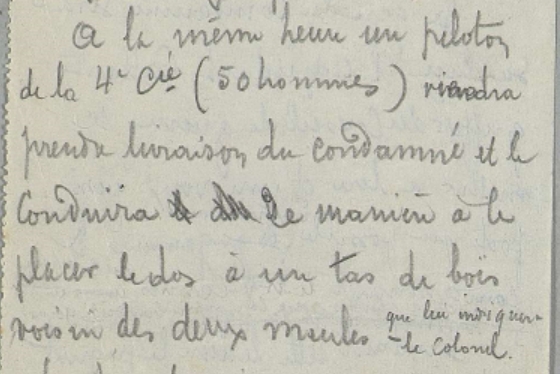 A la même heure un peloton
de la 4e Cie (50 hommes) viendra
prendre livraison du condamné et le
conduira de manière à le
placer le dos à un tas de bois
voisin des deux meules que lui indiquera
le colonel.